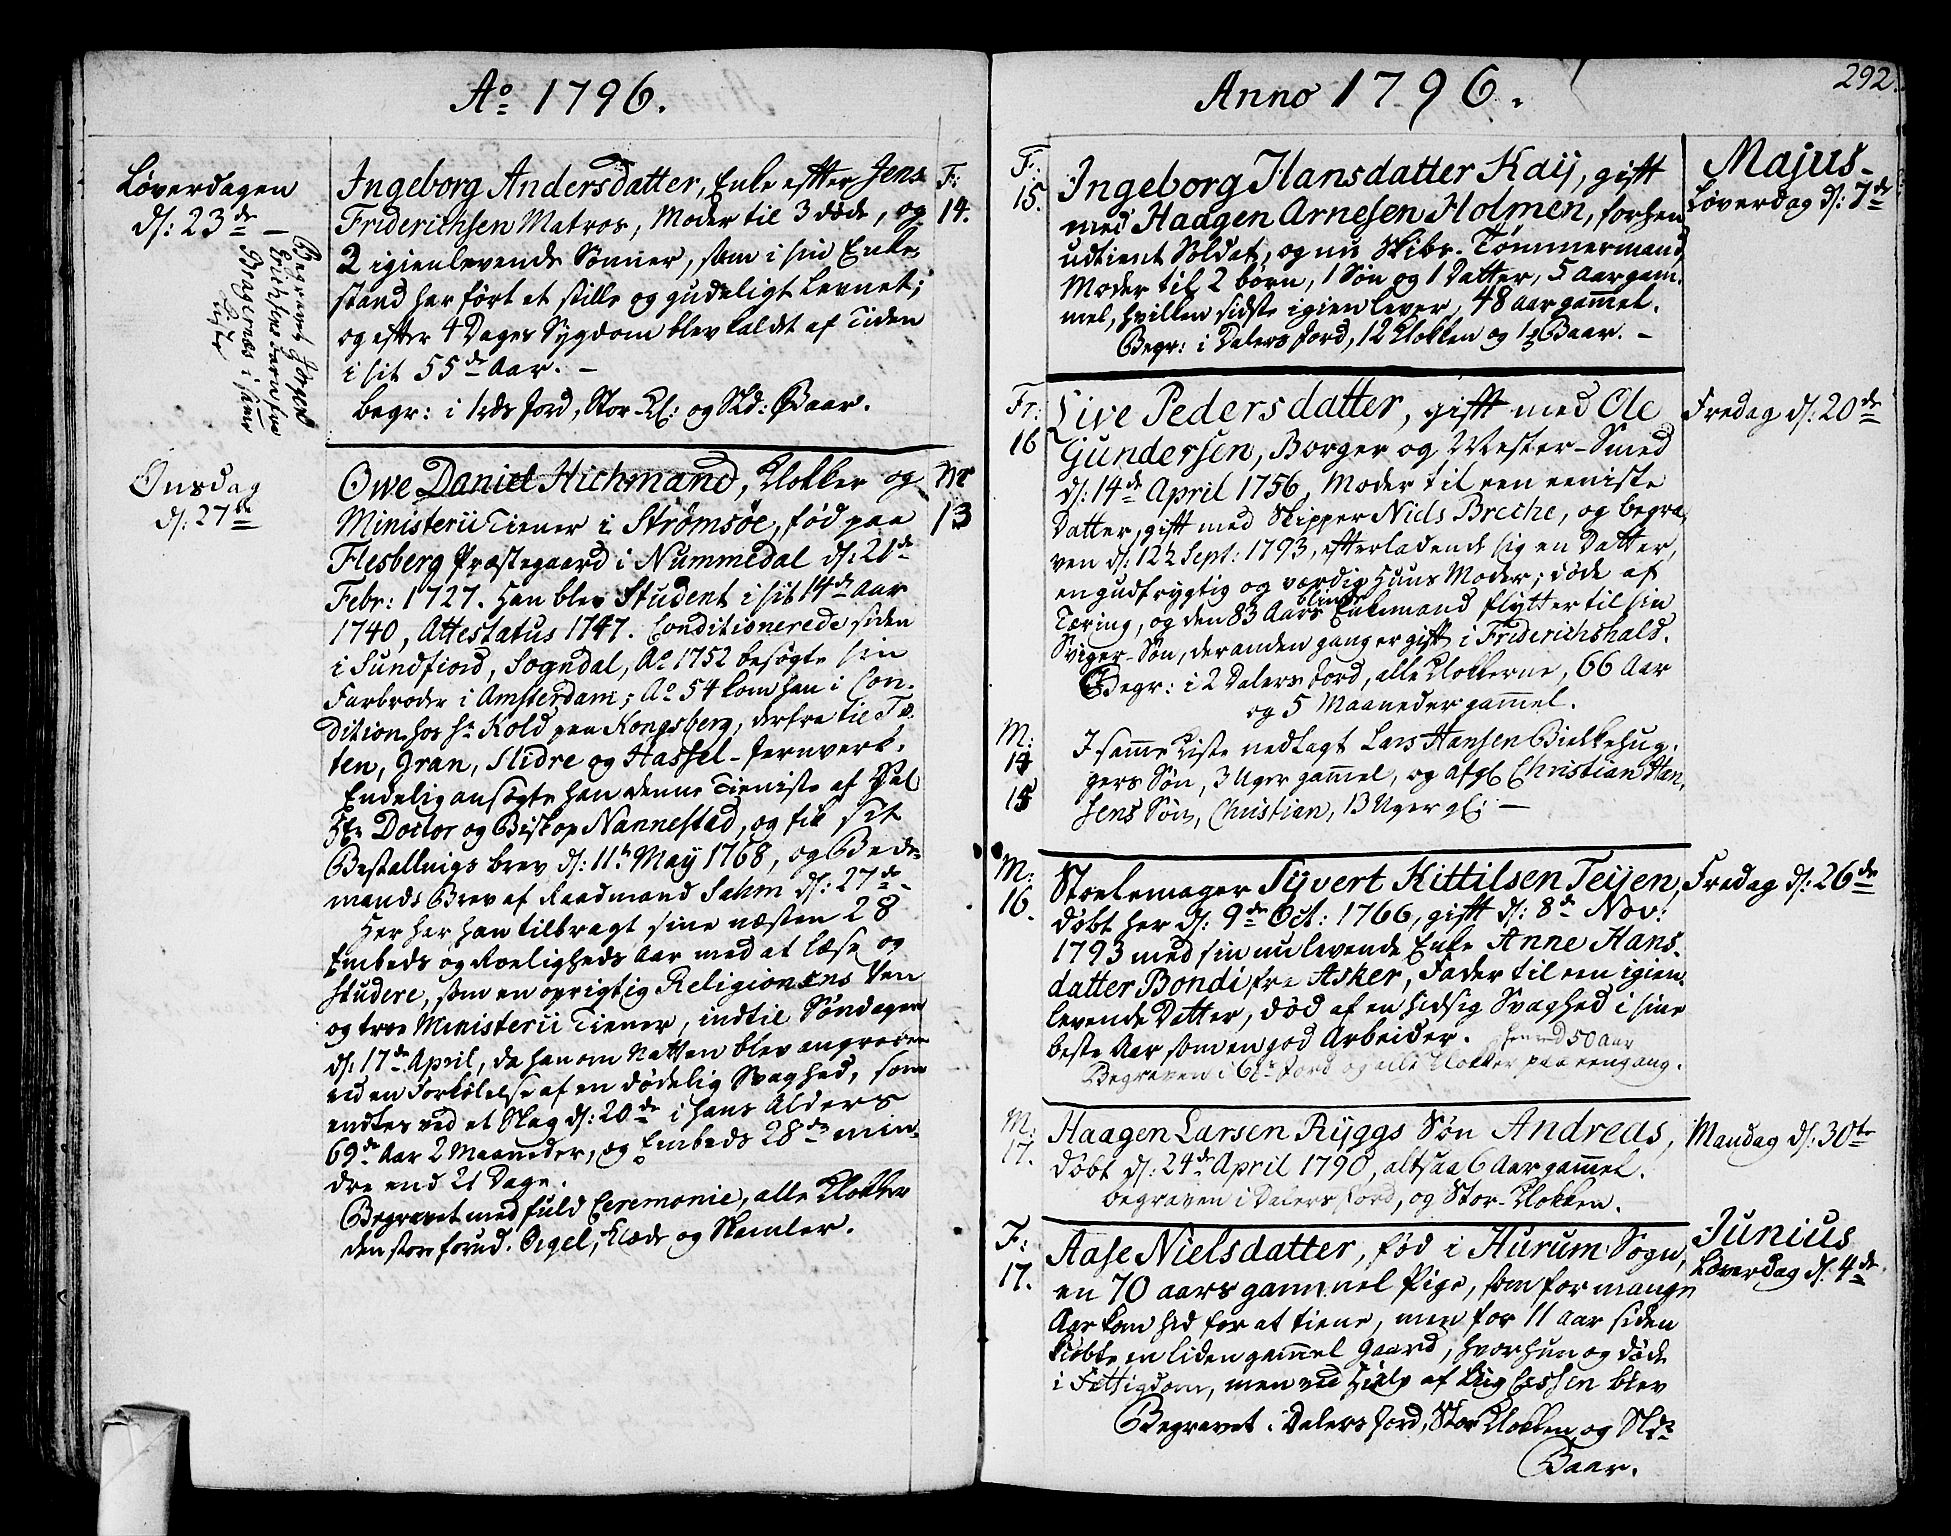 Ao 1796.
Løverdagen
d: 23de
Begravet Jørgen
Bragernæs i samme
Ingeborg Andersdatter, Enke efter Jens
F:
14.
Friderichsen Matros, Moder til 3 døde, og
2 igienlevende Sønner, som i sin Enke-
stand har ført et stille og gudeligt Levnet;
og efter 4 Dages Sygdom blev kaldet af Tiden
i sit 55de Aar. –
begr: i 1rds Jord, Stor Kl: og Sld: Baar.
Onsdag
d: 27de
Owe Daniel Hichmand, Klokker og
M
13
Ministerii Tiener i Strømsøe, fød paa
Flesberg Præstegaard i Nummedal d: 21de
Febr: 1727. Han blev Student i sit 14de Aar
1740, Attestatus 1747. Conditionerede siden
i Sundfiord, Sogndal, Ao 1752 besøgte sin
Farbroder i Amsterdam; Ao 54 kom han i Con-
dition hos Hr Kold paa Kongsberg, derfra til To-
ten, Gran, Slidre og Hassel-Jernverk.
Endelig ansøgte han denne Tieniste af Sal
Hr Doctor og Biskop Nannestad, og fik sit
Bestallnigs brev d: 11te May 1768, og Bede-
mands Brev af Raadmand Sahm d: 27de –
Her har han tilbragt sine næsten 28
Embeds og Roeligheds Aar med at læse og
studere, som en oprigtig Religionens Ven
og troe Ministerii Tiener, indtil Søndagen
d: 17de April, da han om Natten blev angreben
ved en Forkølelse af en dødelig Svaghed, som
endtes ved et Slag d: 20de i hans Alders
69de Aar 2 Maaneder, og Embeds 28de min-
dre end 21 Dage.
Begravet med fuld Ceremonie, alle Klokker
den store forud. Orgel, Klæde og Skamler.
Anno 1796.
292.
F:
15.
Ingeborg Hansdatter Kaij, gift
Majus –
Løverdag d: 7de
med Haagen Arnesen Holmen, forhen
udtient Soldat, og nu Skibs-Tømmermand,
Moder til 2 børn, 1 Søn og 1 Datter, 5 Aar gam-
mel, hvilken sidste igien lever, 48 aar gammel.
Begr: i Dalers Jord, 12 Klokken og 1ste Baar. –
Fr:
16
Live Pedersdatter, gift med Ole
Fredag d: 20de
Gundersen, Borger og Mester-Smed
d: 14de April 1756, Moder til een eeniste
Datter, gift med Skipper Niels Breche, og begra-
ven d: 12te Sept: 1793, efterladende sig en Datter,
en gudfrygtig og værdig Huus Moder; døde af
Tæring, og den 83 Aars blinde Enkemand flytter til sin
Sviger-Søn, der anden gang er gift i Friderichshald.
Begr: i 2 Dalers Jord, alle Klokkerne, 66 Aar
og 5 Maaneder gammel.
M:
14
15
I samme Kiste nedlagt Lars Hansen Birkehug-
gers Søn, 3 Uger gammel, og afgl Christian Han-
sens Søn, Christian, 13 Uger gl: –
M:
16.
Stoelemager Syvert Kittilsen Teijen,
Fredag d: 26de
døbt her d: 9de Oct: 1766, gift d: 8de Nov:
1793 med sin nu levende Enke Anne Hans-
datter Bondi, fra Asker, Fader til een igien-
levende Datter, død af en hidsig Svaghed i sine
beste Aar som en god Arbeider. 50 Aar
Begraven i 6te Jord og alle Klokker paa eengang.
M:
17.
Haagen Larsen Ryggs Søn Andreas,
Mandag d: 30te
døbt d: 24de April 1790, altsaa 6 Aar gammel.
begraven i Dalers Jord, og Stor-Klokken.
F:
17.
Aase Nielsdatter, fød i Hurum Sogn,
Junius
Løverdag d: 4de
en 70 aars gammel Pige, som for mange
Aar kom hid for at tiene, men for 11 aar siden
kiøbte en liden gammel Gaard, hvor hun og døde
i Fattigdom, men ved Hielp af Liig Cassen blev
Begravet i Dalers Jord, Stor Klokken og Sld:
Baar.